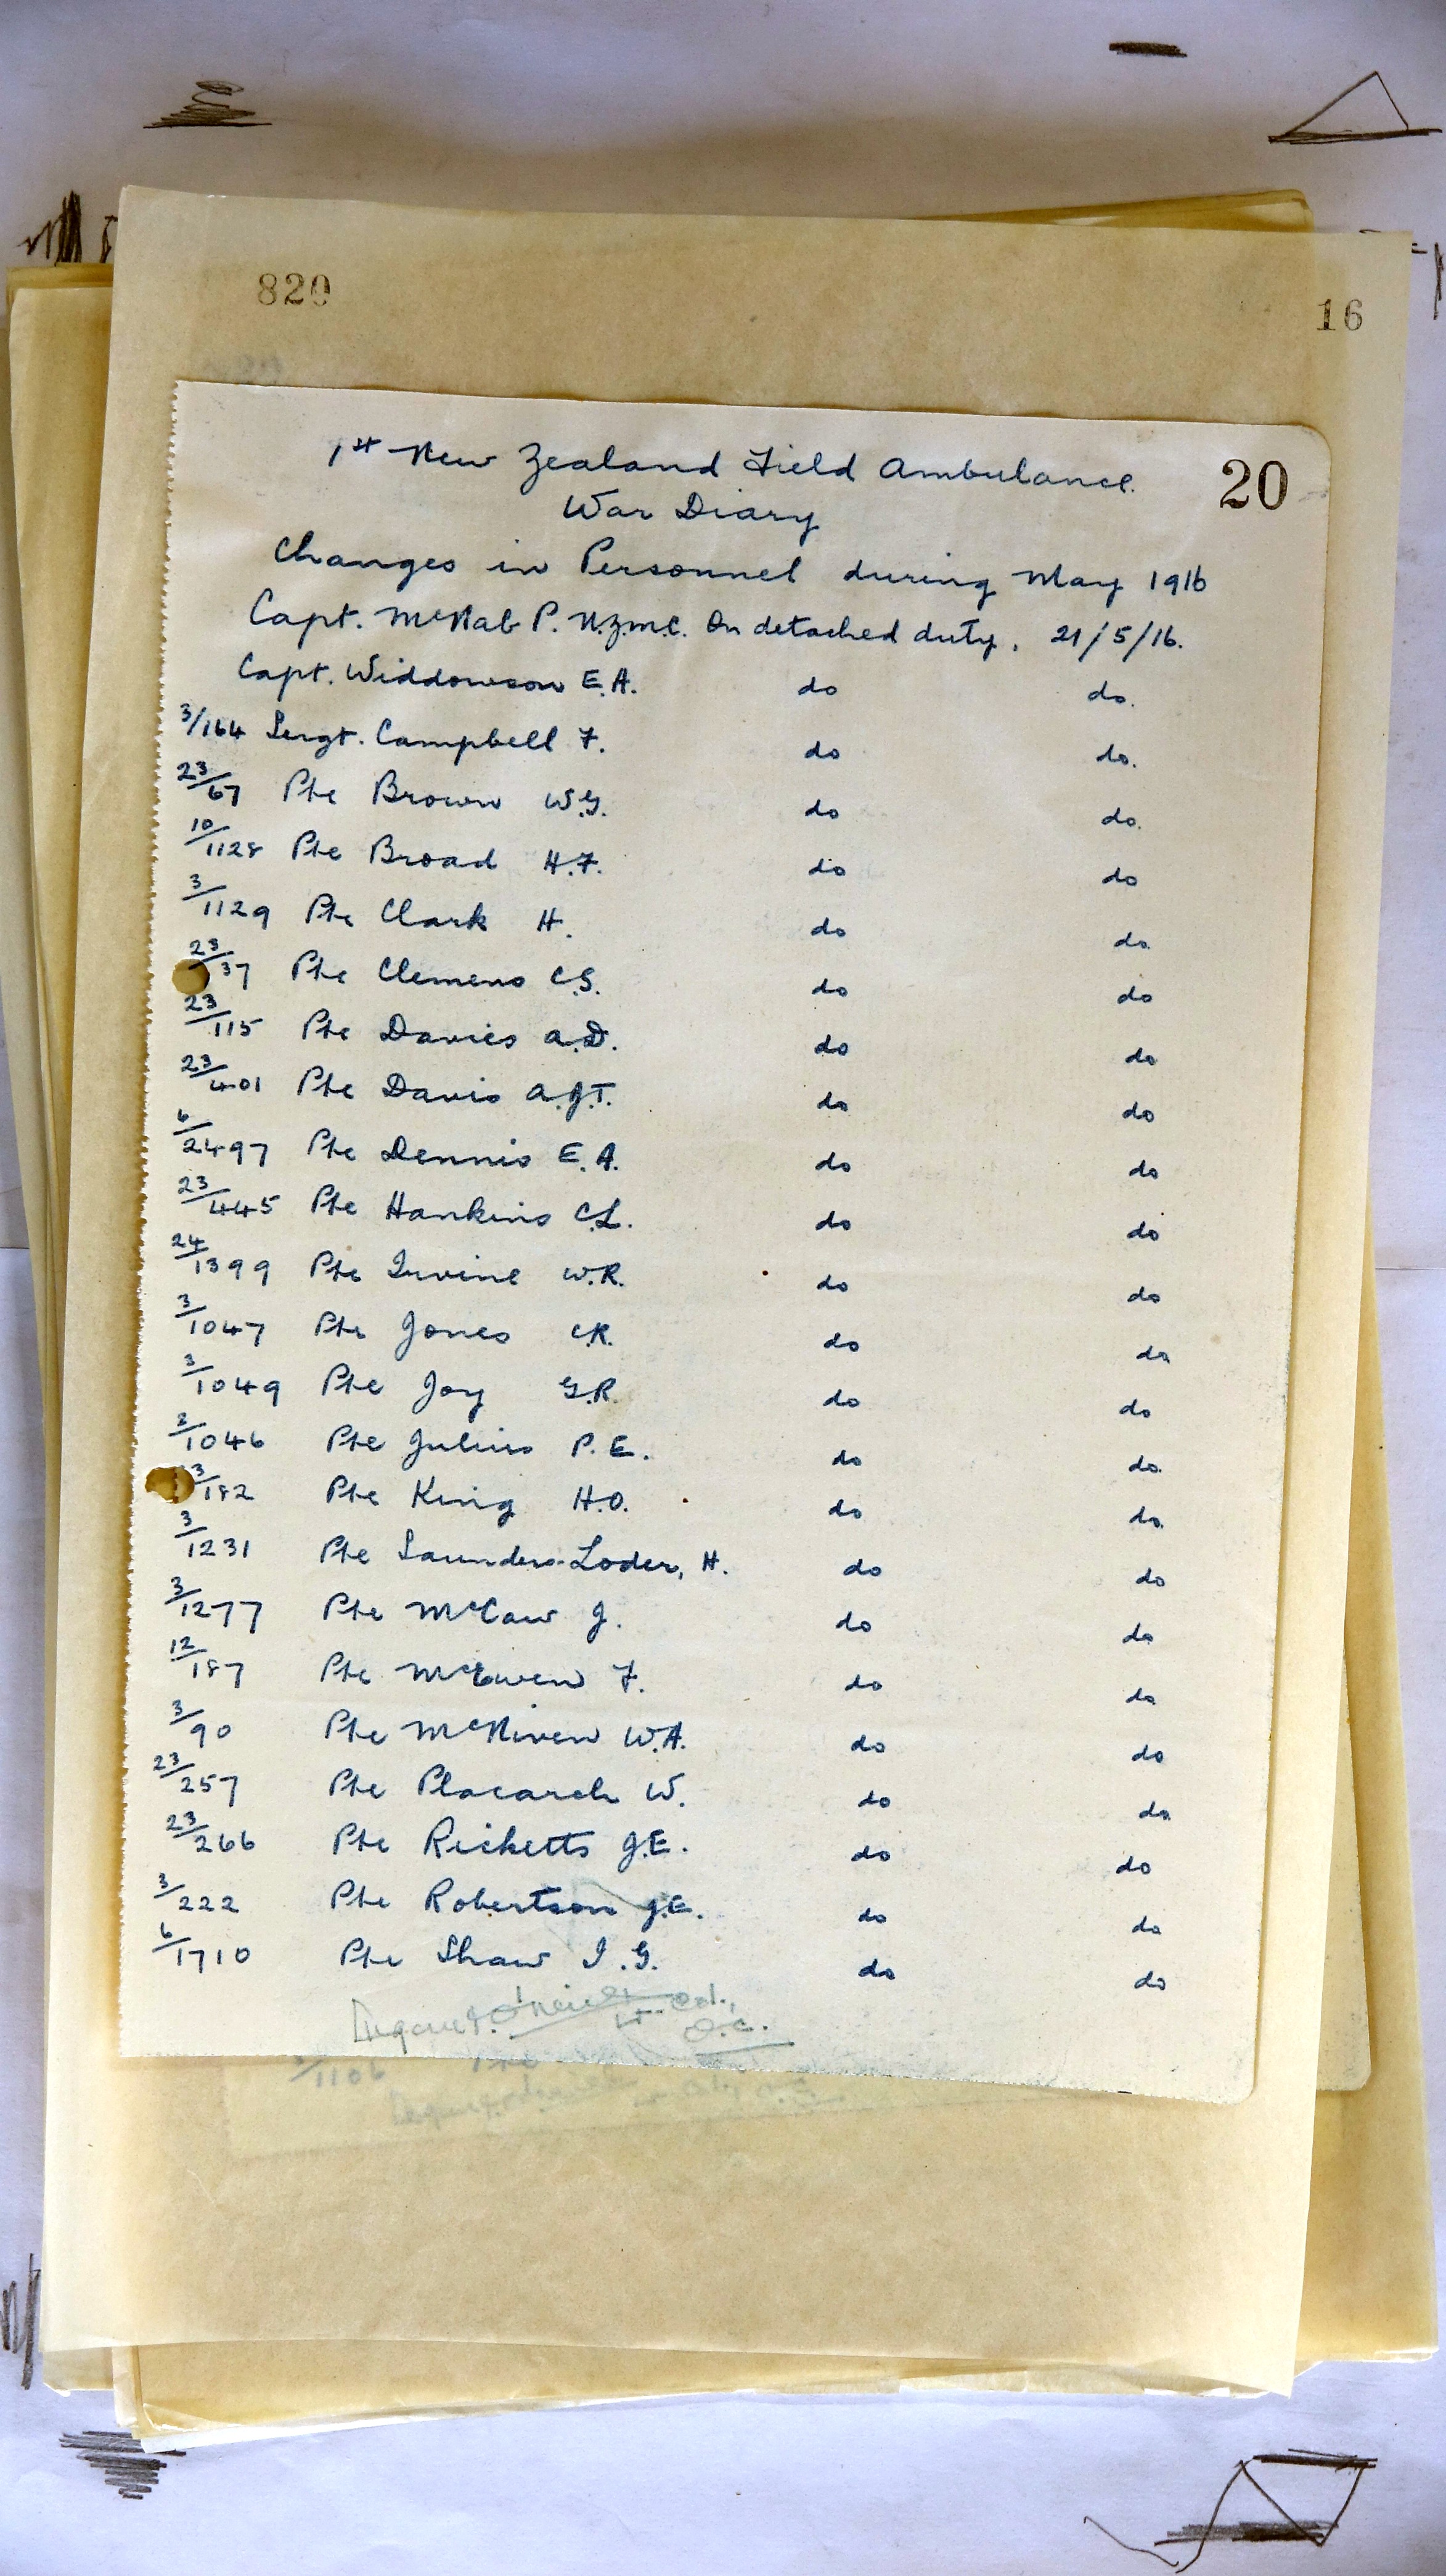 820
16
20
1st New Zealand Field Ambulance.
War Diary
Changes in Personnel during May 1916
Capt. McNab P. N.Z.M.C. On detached duty. 21/5/16.
Capt. Widdowson E.A. do do.
3/164 Sergt. Campbell F. do do.
23/67 Pte Brown W.G. do do.
10/1128 Pte Broad H.F. do do
3/1129 Pte Clark H. do do
23/37 Pte Clemens C.S. do do
23/115 Pte Davies A.D. do do
23/401 Pte Davis A.J.T. do do
6/2497 Pte Dennis E.A. do do
23/445 Pte Hankins C.L. do do
24/1399 Pte Irvine W.R. do do
3/1047 Pte Jones C.R. do do
3/1049 Pte Joy G.R. do do
3/1046 Pte Julius P.E. do do.
3/182 Pte King H.O. do do.
3/1231 Pte Saunders-Loder, H. do do
3/1277 Pte McCaw J. do do
12/187 Pte McEwen F. do do
3/90 Pte McNiven W.A. do do
23/257 Pte Placarch W. do do
23/266 Pte Ricketts J.E. do do
3/222 Pte Robertson J.E. do do
6/1710 Pte Shaw I.G. do do
Lt Col.,
O.C.
1106